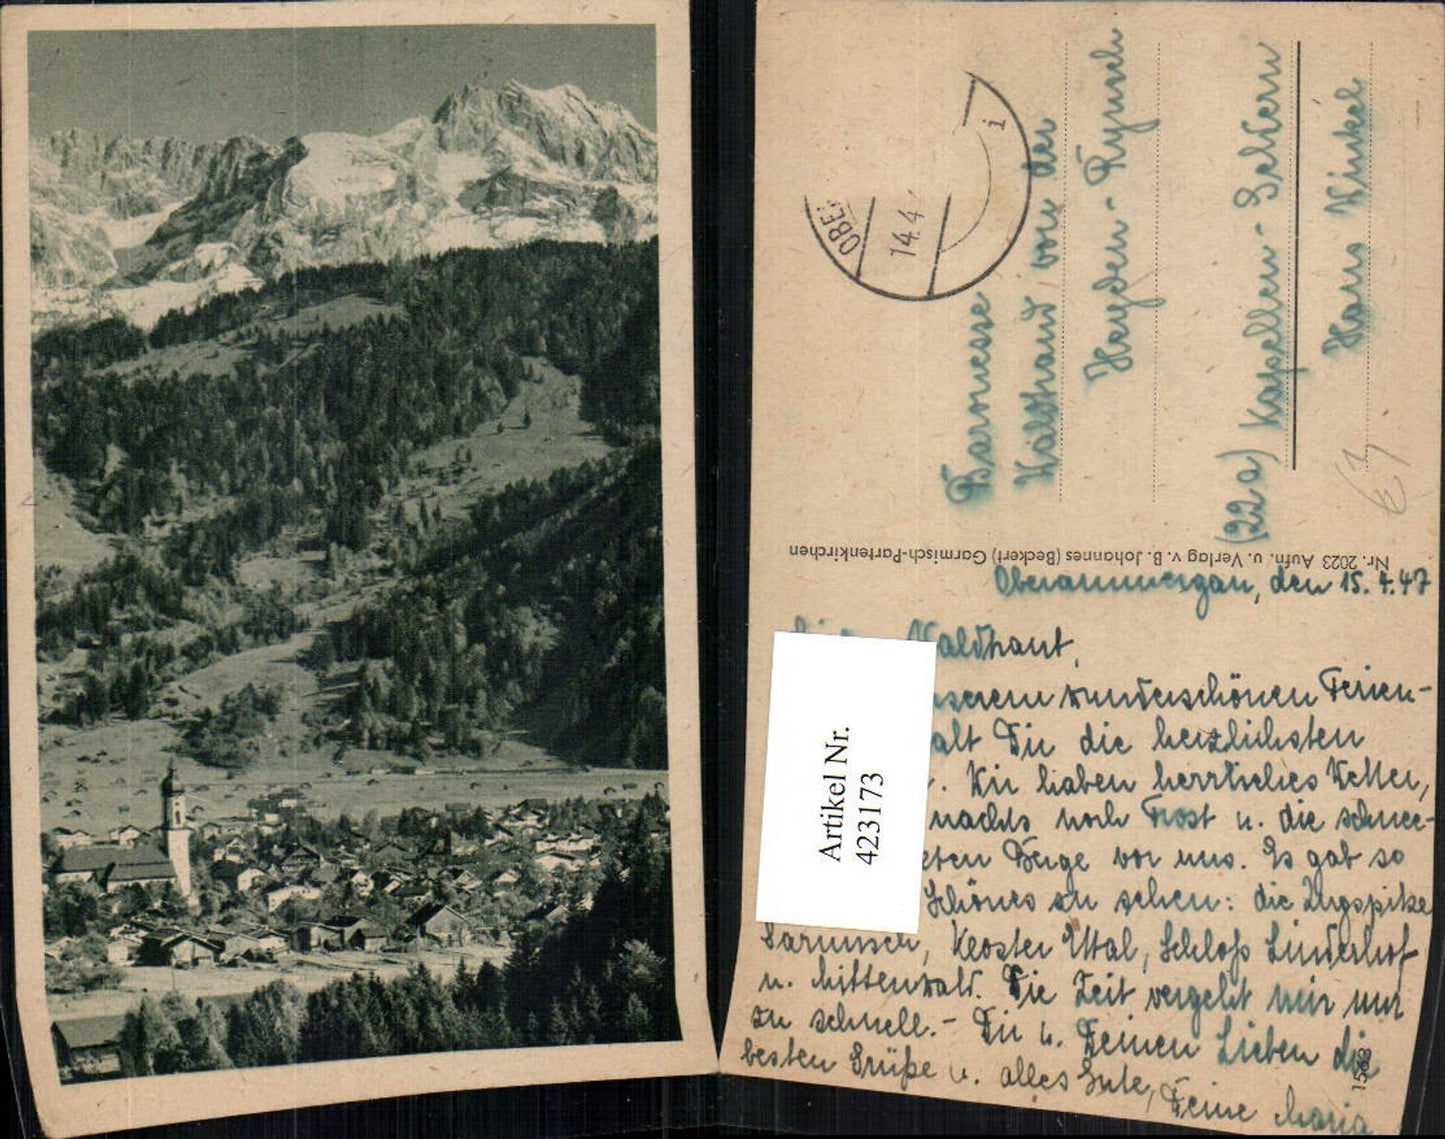 OBE
14.4
i
Baronesse
Waldtraut von der
Heyden-Rynsch
(22a) Kapellen-Geldern
Haus Winkel
€3
Nr. 2023 Aufn. u. Verlag v. B. Johannes (Beckert) Garmisch-Partenkirchen
Oberammergau, den 15.4.47
Waldtraut,
wunderschönen Ferien-
alt Dir die herzlichsten
Wir haben herrliches Wetter,
nachts noch Frost u. die schnee-
Berge vor uns. Es gab so
Schönes zu sehen: die Zugspitze
Garmisch, Kloster Ettal, Schloß Linderhof
u. Mittenwald. Die Zeit vergeht mir nur
zu schnell. - Dir u. Deinen Lieben die
besten Grüße u. alles Gute, Deine Maria
Artikel Nr.
423173
1588